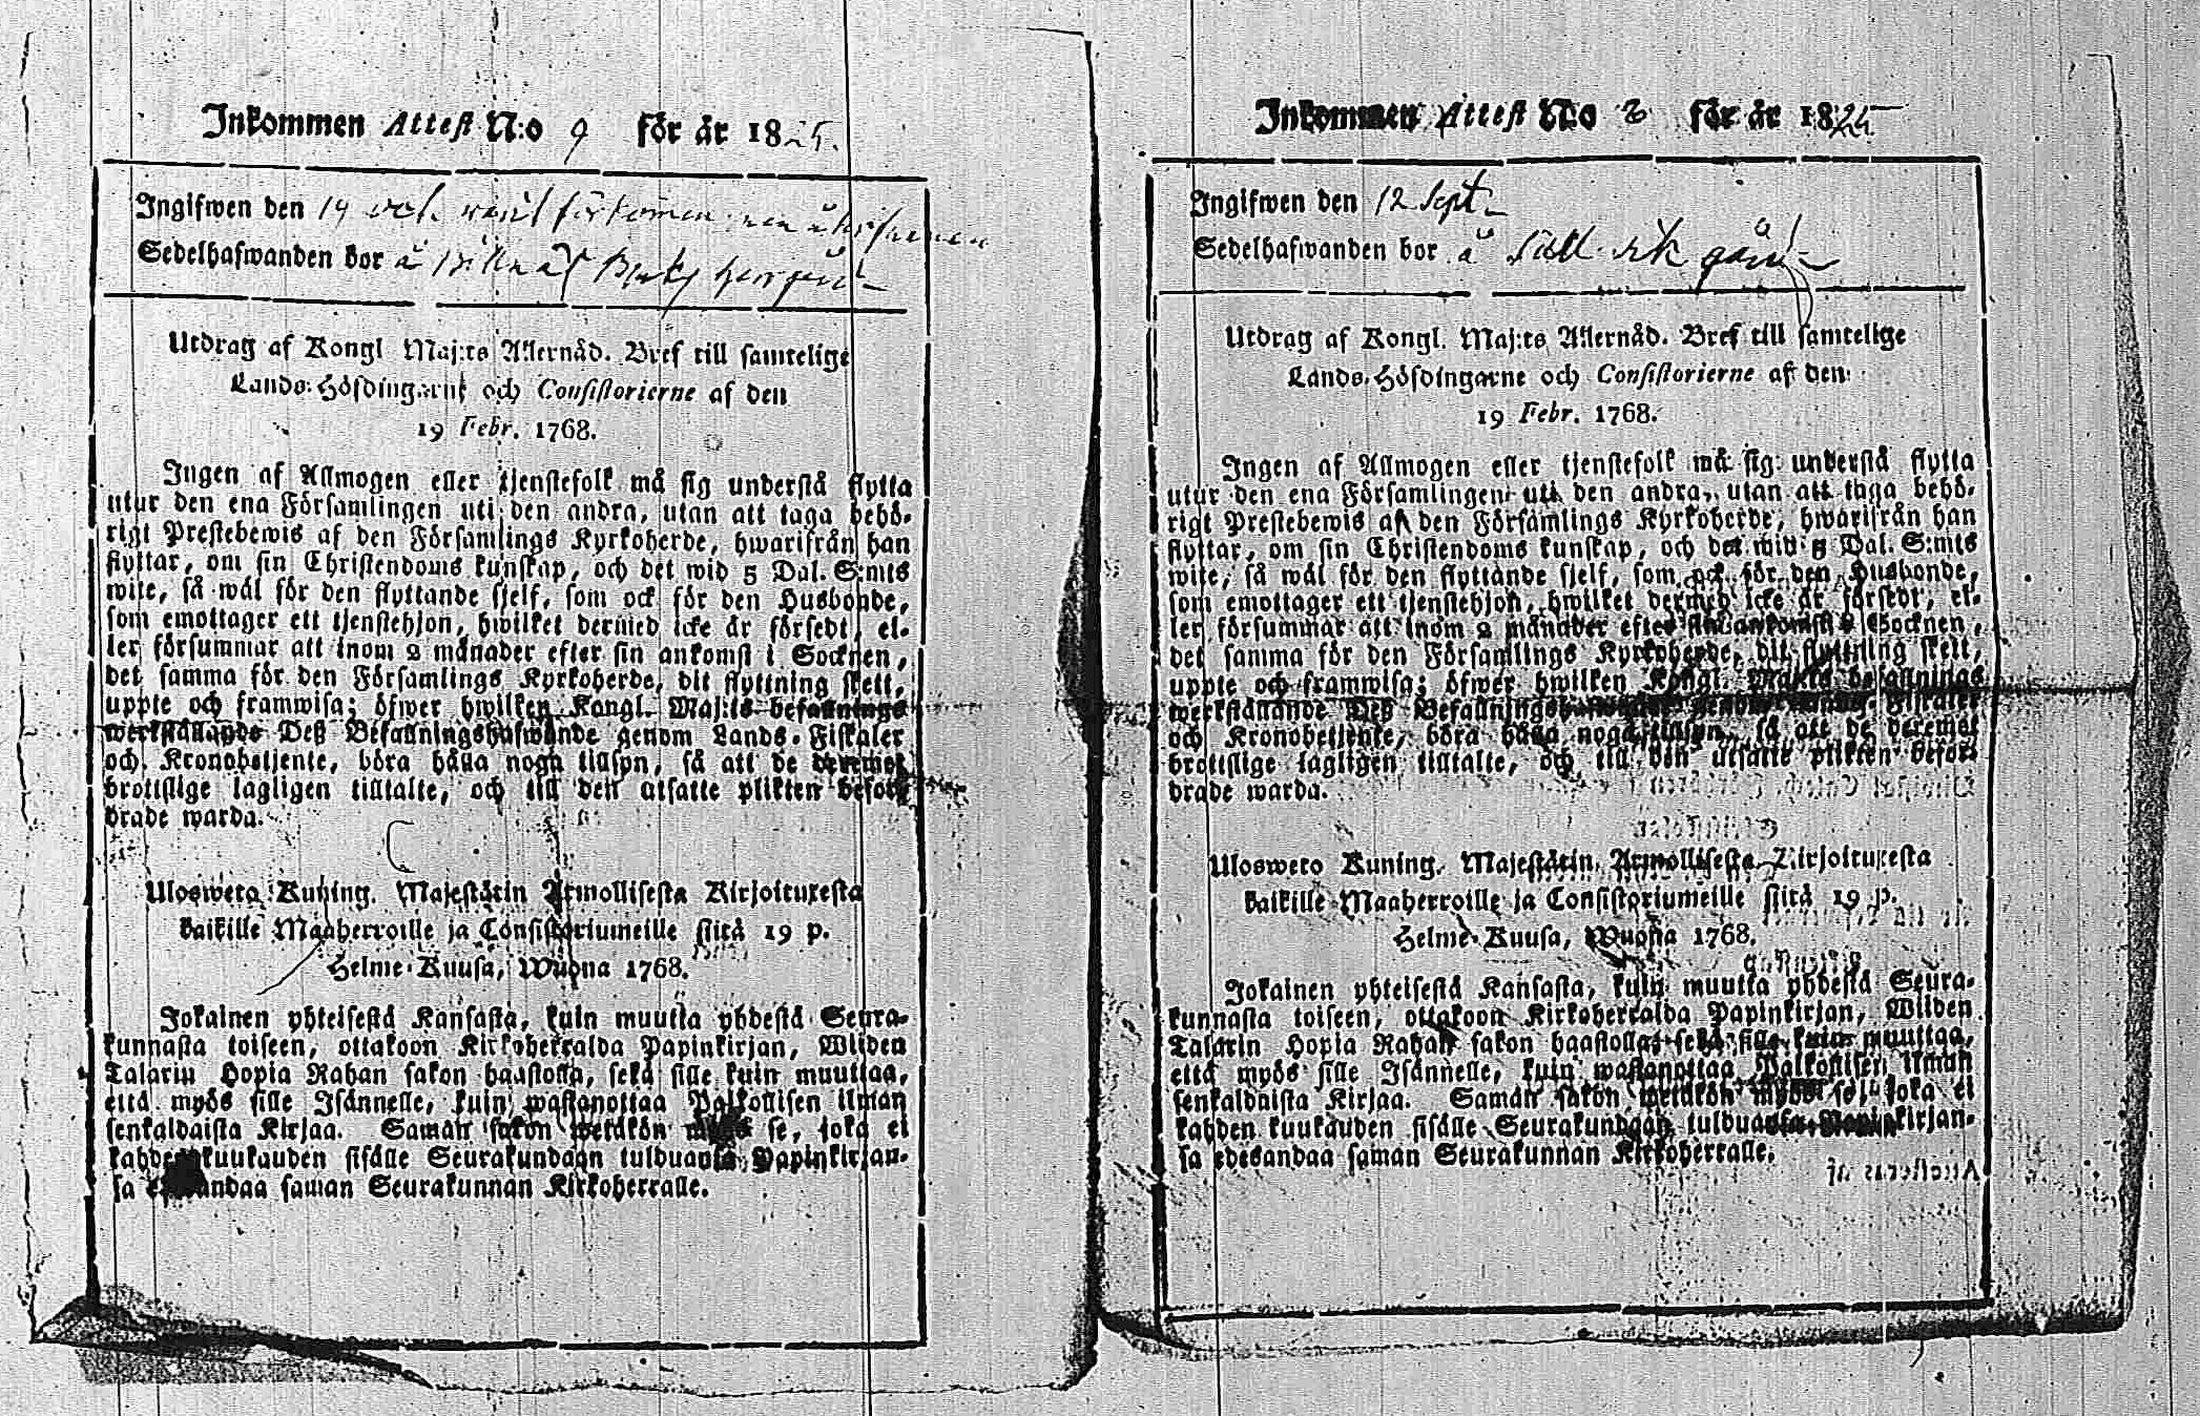 Inkommen Attest N:o 9 för år 1825.
Ingifwen den 14 oct. warit förkommen
Sedelhafwanden bor å Billnäs Bruk
Utdrag af Kongl. Maj:ts Allernåd. Bref till samtelige
Lands-Höfdingarne och Consistorierne af den
19 Febr. 1768.
Ingen af Allmogen eller tjenstefolk må sig understå flytta
utur den ena Församlingen uti den andra, utan att taga behö-
rigt Prestebewis af den Församlings Kyrkoherde, hwarifrån han
flyttar, om sin Christendoms kunskap, och det wid 5 Dal. S:mts
wite, så wäl för den flyttande sjelf, som ock för den Husbonde,
som emottager ett tjenstehjon, hwilket dermed icke är försedt, el-
ler försummar att inom 2 månader efter sin ankomst i Socknen,
det samma för den Församlings Kyrkoherde, dit flyttning skett,
uppte och framwisa; öfwer hwilken Kongl. Maj:ts befallnings
werkställande Deß Befallningshafwande genom Lands-Fiskaler
och Kronobetjente, böra hålla noga tillsyn, så att de deremot
brottslige lagligen tilltalte, och till den utsatte plikten befor-
drade warda.
Ulosweto Kuning. Majestätin Armollisesta Kirjoituxesta
kaikille Maaherroille ja Consistoriumeille siitä 19 p.
Helme-Kuusa, Wuonna 1768.
Jokainen yhteisestä Kansasta, kuin muutta yhdestä Seura-
kunnasta toiseen, ottakoon Kirkoherralda Papinkirjan, Wiiden
Talarin Hopia Rahan sakon haastolla, sekä sille kuin muuttaa,
että myös sille Isännelle, kuin wastanottaa Palkollisen ilman
senkaldaista Kirjaa. Samän sakon wetäkön myös se, joka ei
kahden kuukauden sisälle Seurakundaan tulduansa Papinkirjan-
sa edesandaa saman Seurakunnan Kirkoherralle.
Inkommen Attest N:o 8 för år 1825
Ingifwen den 12 Sept.
Sedelhafwanden bor å gård
Utdrag af Kongl. Maj:ts Allernåd. Bref till samtelige
Lands-Höfdingarne och Consistorierne af den
19 Febr. 1768.
Ingen af Allmogen eller tjenstefolk må sig understå flytta
utur den ena Församlingen uti den andra, utan att taga behö-
rigt Prestebewis af den Församlings Kyrkoherde, hwarifrån han
flyttar, om sin Christendoms kunskap, och det wid 5 Dal. S:mts
wite, så wäl för den flyttande sjelf, som ock för den Husbonde,
som emottager ett tjenstehjon, hwilket dermed icke är försedt, el-
ler försummar att inom 2 månader efter sin ankomst i Socknen,
det samma för den Församlings Kyrkoherde, dit flyttning skett,
uppte och framwisa; öfwer hwilken Kongl. Maj:ts befallnings
werkställande Deß Befallningshafwande genom Lands-Fiskaler
och Kronobetjente, böra hålla noga tillsyn, så att de deremot
brottslige lagligen tilltalte, och till den utsatte plikten befor-
drade warda.
Ulosweto Kuning. Majestätin Armollisesta Kirjoituxesta
kaikille Maaherroille ja Consistoriumeille siitä 19 p.
Helme-Kuusa, Wuonna 1768.
Jokainen yhteisestä Kansasta, kuin muutta yhdestä Seura-
kunnasta toiseen, ottakoon Kirkoherralda Papinkirjan, Wiiden
Talarin Hopia Rahan sakon haastolla, sekä sille kuin muuttaa,
että myös sille Isännelle, kuin wastanottaa Palkollisen ilman
senkaldaista Kirjaa. Samän sakon wetäkön myös se, joka ei
kahden kuukauden sisälle Seurakundaan tulduansa Papinkirjan-
sa edesandaa saman Seurakunnan Kirkoherralle.